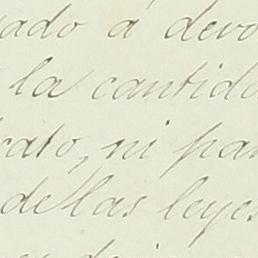 ado á devo
la cantida
cato, ni par
de las leyes